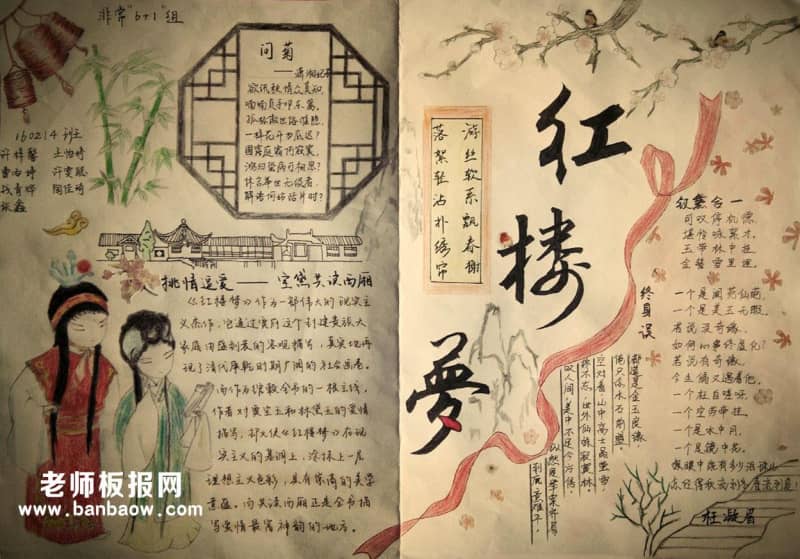 非常"6+1"组
160214班
问菊
——潇湘妃子
欲讯秋情众莫知，
喃喃负手叩东篱。
孤标傲世偕谁隐，
一样花开为底迟？
圃露庭霜何寂寞，
鸿归蛩病可相思？
休言举世无谈者，
解语何妨话片时？
挑情逗爱——宝黛共读西厢
《红楼梦》作为一部伟大的现实主
义杰作，它通过贾府这个封建贵族大
家庭由盛到衰的客观描写，真实地再
现了清代康乾时期广阔的社会画卷。
而作为绵毅全书的一根主线，
作者对贾宝玉和林黛玉的爱情
描写，却又使《红楼梦》在现
实主义的基调上，涂抹上一层
理想主义色彩，具有崇高的美学
意蕴。而共读西厢正是全书描
写爱情最富神韵的地方。
老师板报网
www.banbaow.com
红楼梦
游丝软系飘春榭
落絮轻沾扑绣帘
钗黛合一
可叹停机德，
堪怜咏絮才。
玉带林中挂，
金簪雪里埋。
终身误
都道是金玉良缘
俺只念木石前盟。
空对着山中高士晶莹雪，
终不忘，世外仙姝寂寞林。
叹人间，美中不足今方信。
纵然是举案齐眉
到底意难平。
枉凝眉
一个是阆苑仙葩，
一个是美玉无瑕。
若说没奇缘，
如何心事终虚化？
若说有奇缘，
今生偏又遇着他，
一个枉自嗟呀，
一个空劳牵挂。
一个是水中月，
一个是镜中花。